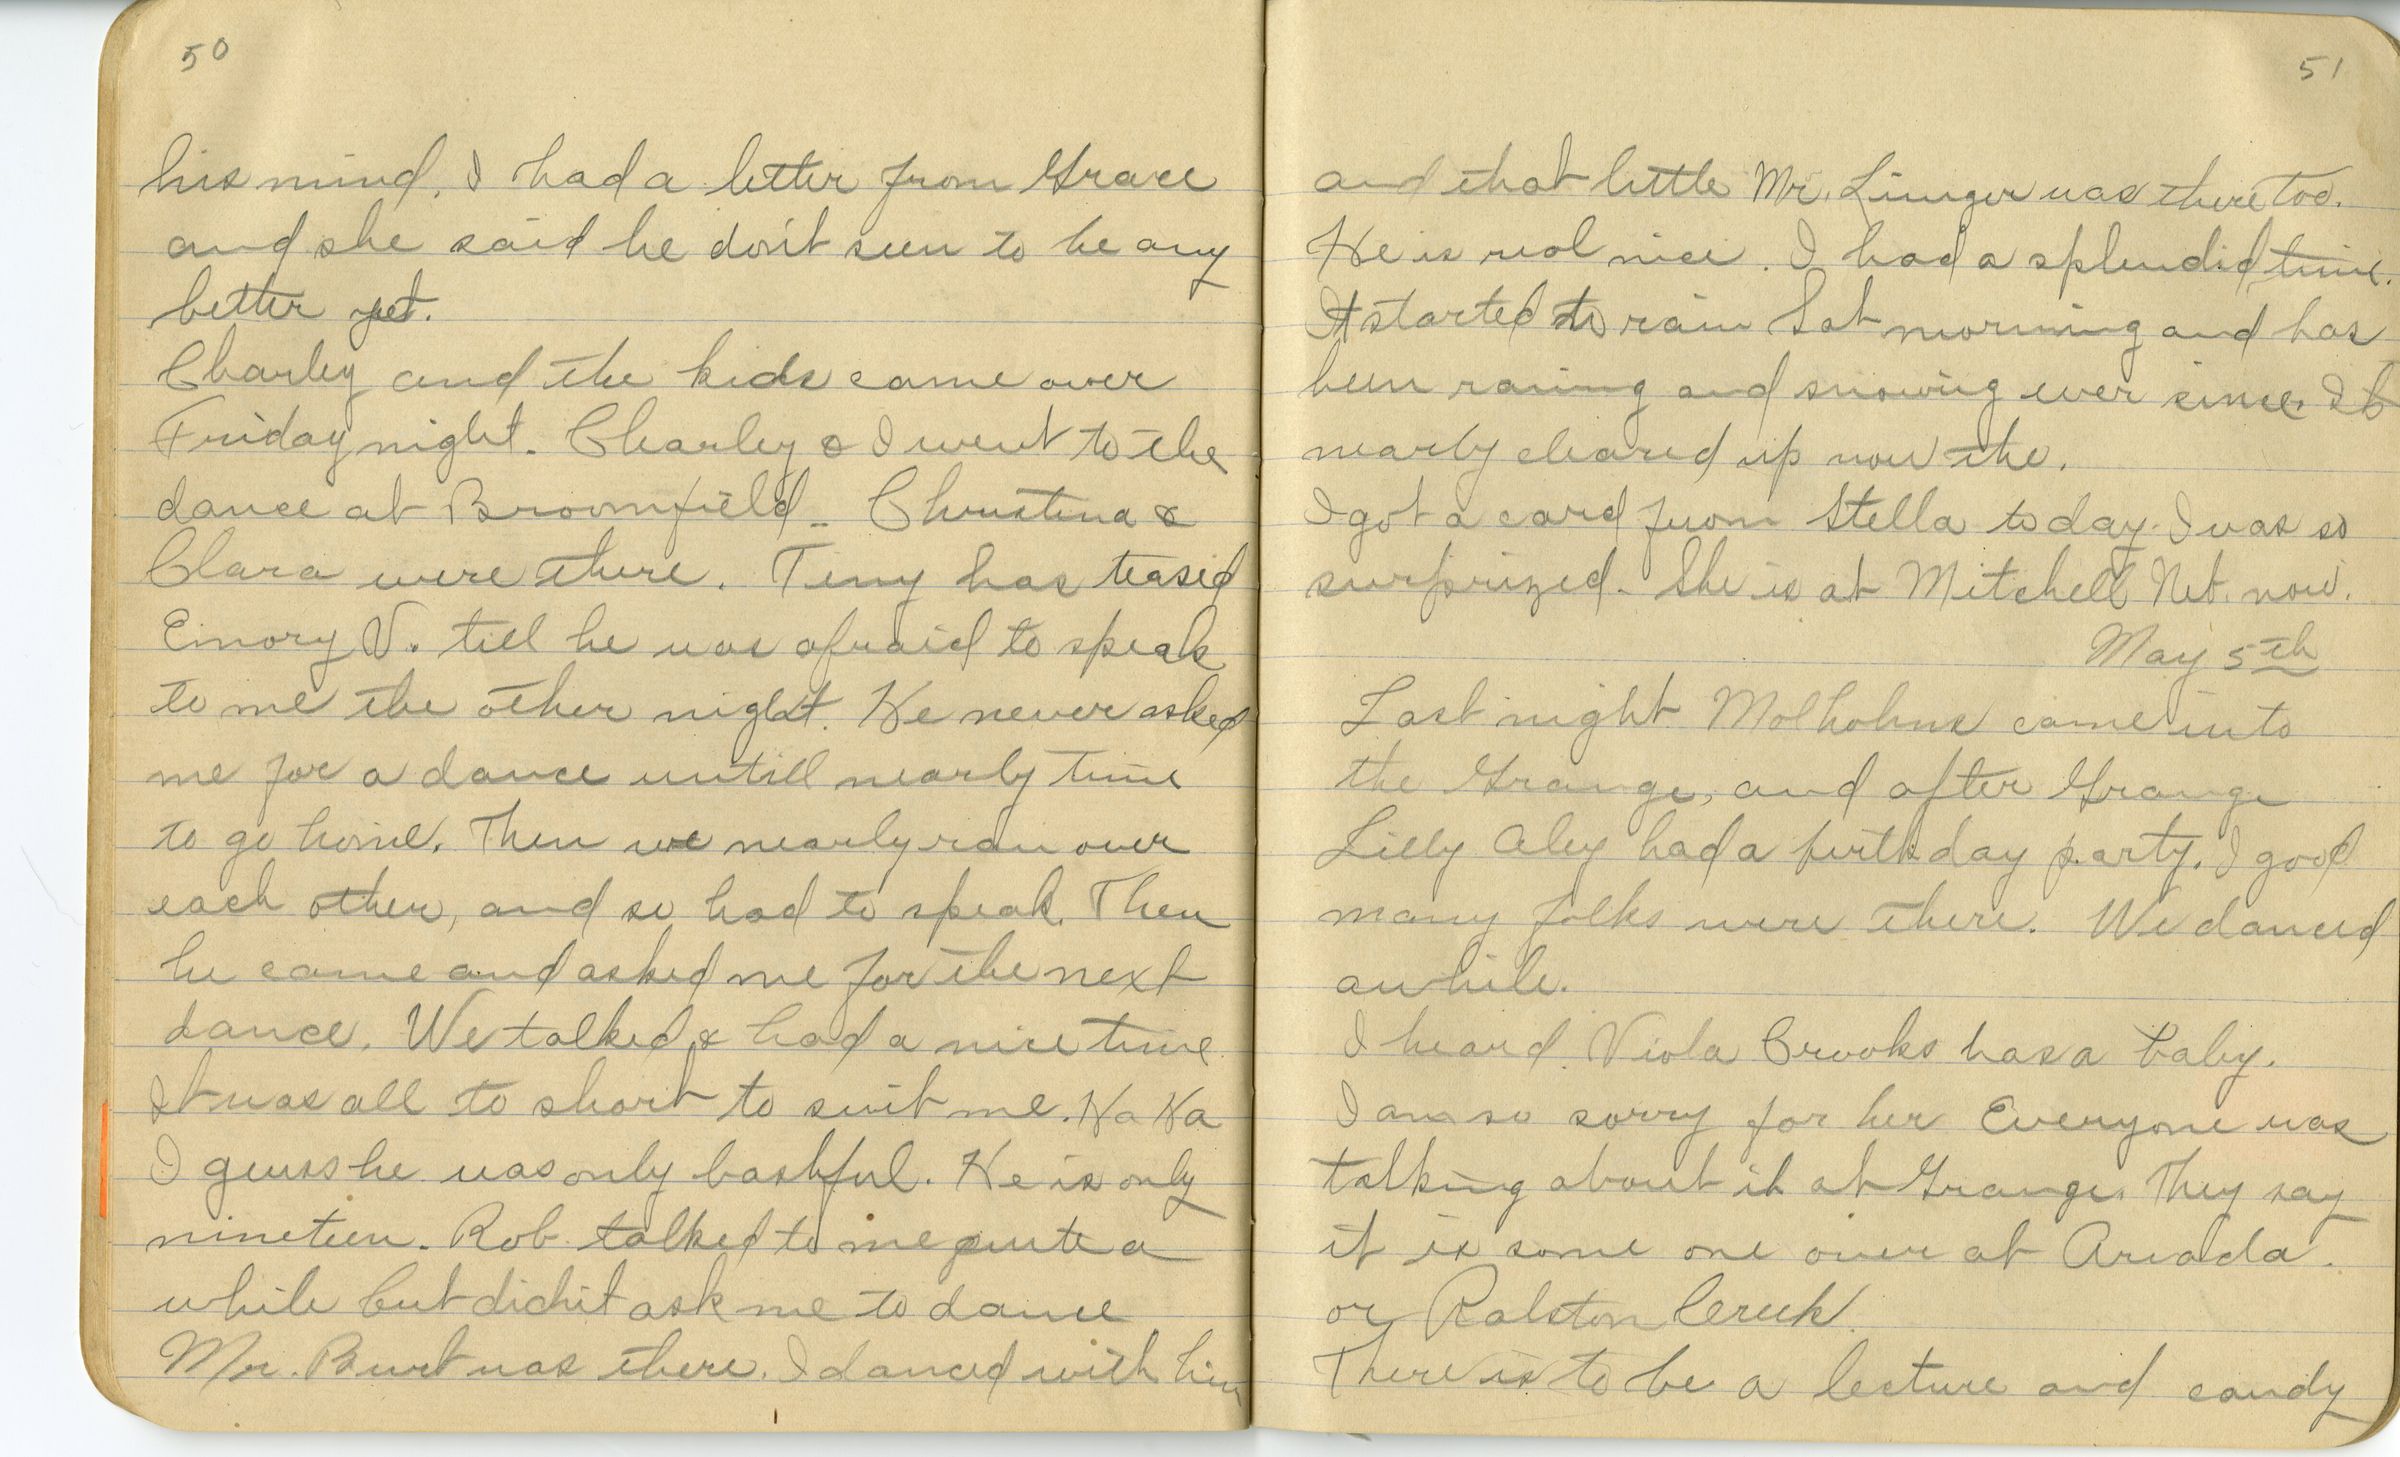 50
his mind. I had a letter from Grace
and she said he don't seem to be any
better yet.
Charley and the kids came over
Friday night. Charley & I went to the
dance at Broomfield. Christina &
Clara were there. Tiny has teased
Emory V. till he was afraid to speak
to me the other night. He never asked
me for a dance untill nearly time
to go home. Then we nearly ran over
each other, and so had to speak. Then
he came and asked me for the next
dance. We talked & had a nice time.
It was all to short to suit me. Ha Ha
I guess he was only bashful. He is only
nineteen. Rob talked to me quite a
while but didn't ask me to dance
Mr. Burt was there. I danced with him
51
and that little Mr. Linger was there too.
He is real nice. I had a splendid time.
It started to rain Sat morning and has
been raning and snowing ever since. It
nearly cleared up now tho.
I got a card from Stella today. I was so
surprized. She is at Mitchell Neb. now.
May 5th
Last night Molholms came into
the Grange, and after Grange
Lilly Aley had a birthday party. I good
many folks were there. We danced
awhile.
I heard Viola Crooks has a baby.
I am so sorry for her Everyone was
talking about it at Grange. They say
it is some one over at Arvada.
or Ralston Creek.
There is to be a lecture and candy